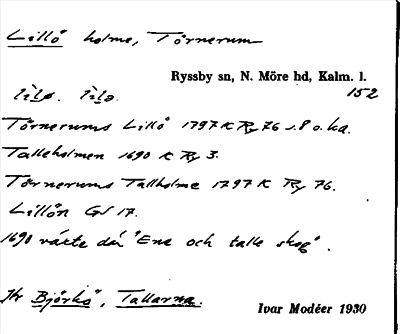 Lillö holme, Törnerum
Ryssby sn, N. Möre hd, Kalm. l.
152
Törnerums Lillö 1797 K Ry 76 s. 8 o. ka.
Talleholmen 1690 K Ry 3.
Törnerums Tallholme 1797 K Ry 76.
Lillön GS 17.
1690 växte där "Ene och talle skog".
Jfr Björkö, Tallarna.
Ivar Modéer 1930